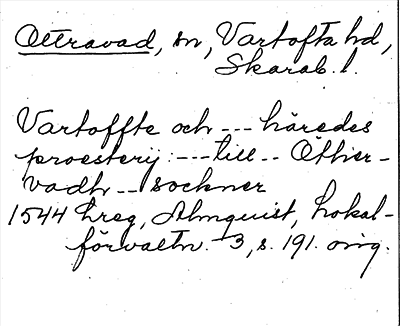 Ottravad, sn, Vartofta hd,
Skarab. l.
Vartoffte och --- häredes
proesterij: --- till -- Othier-
vadh -- sockner
1544 hreg, Almquist, Lokal-
förvaltn. 3, s. 191. orig.